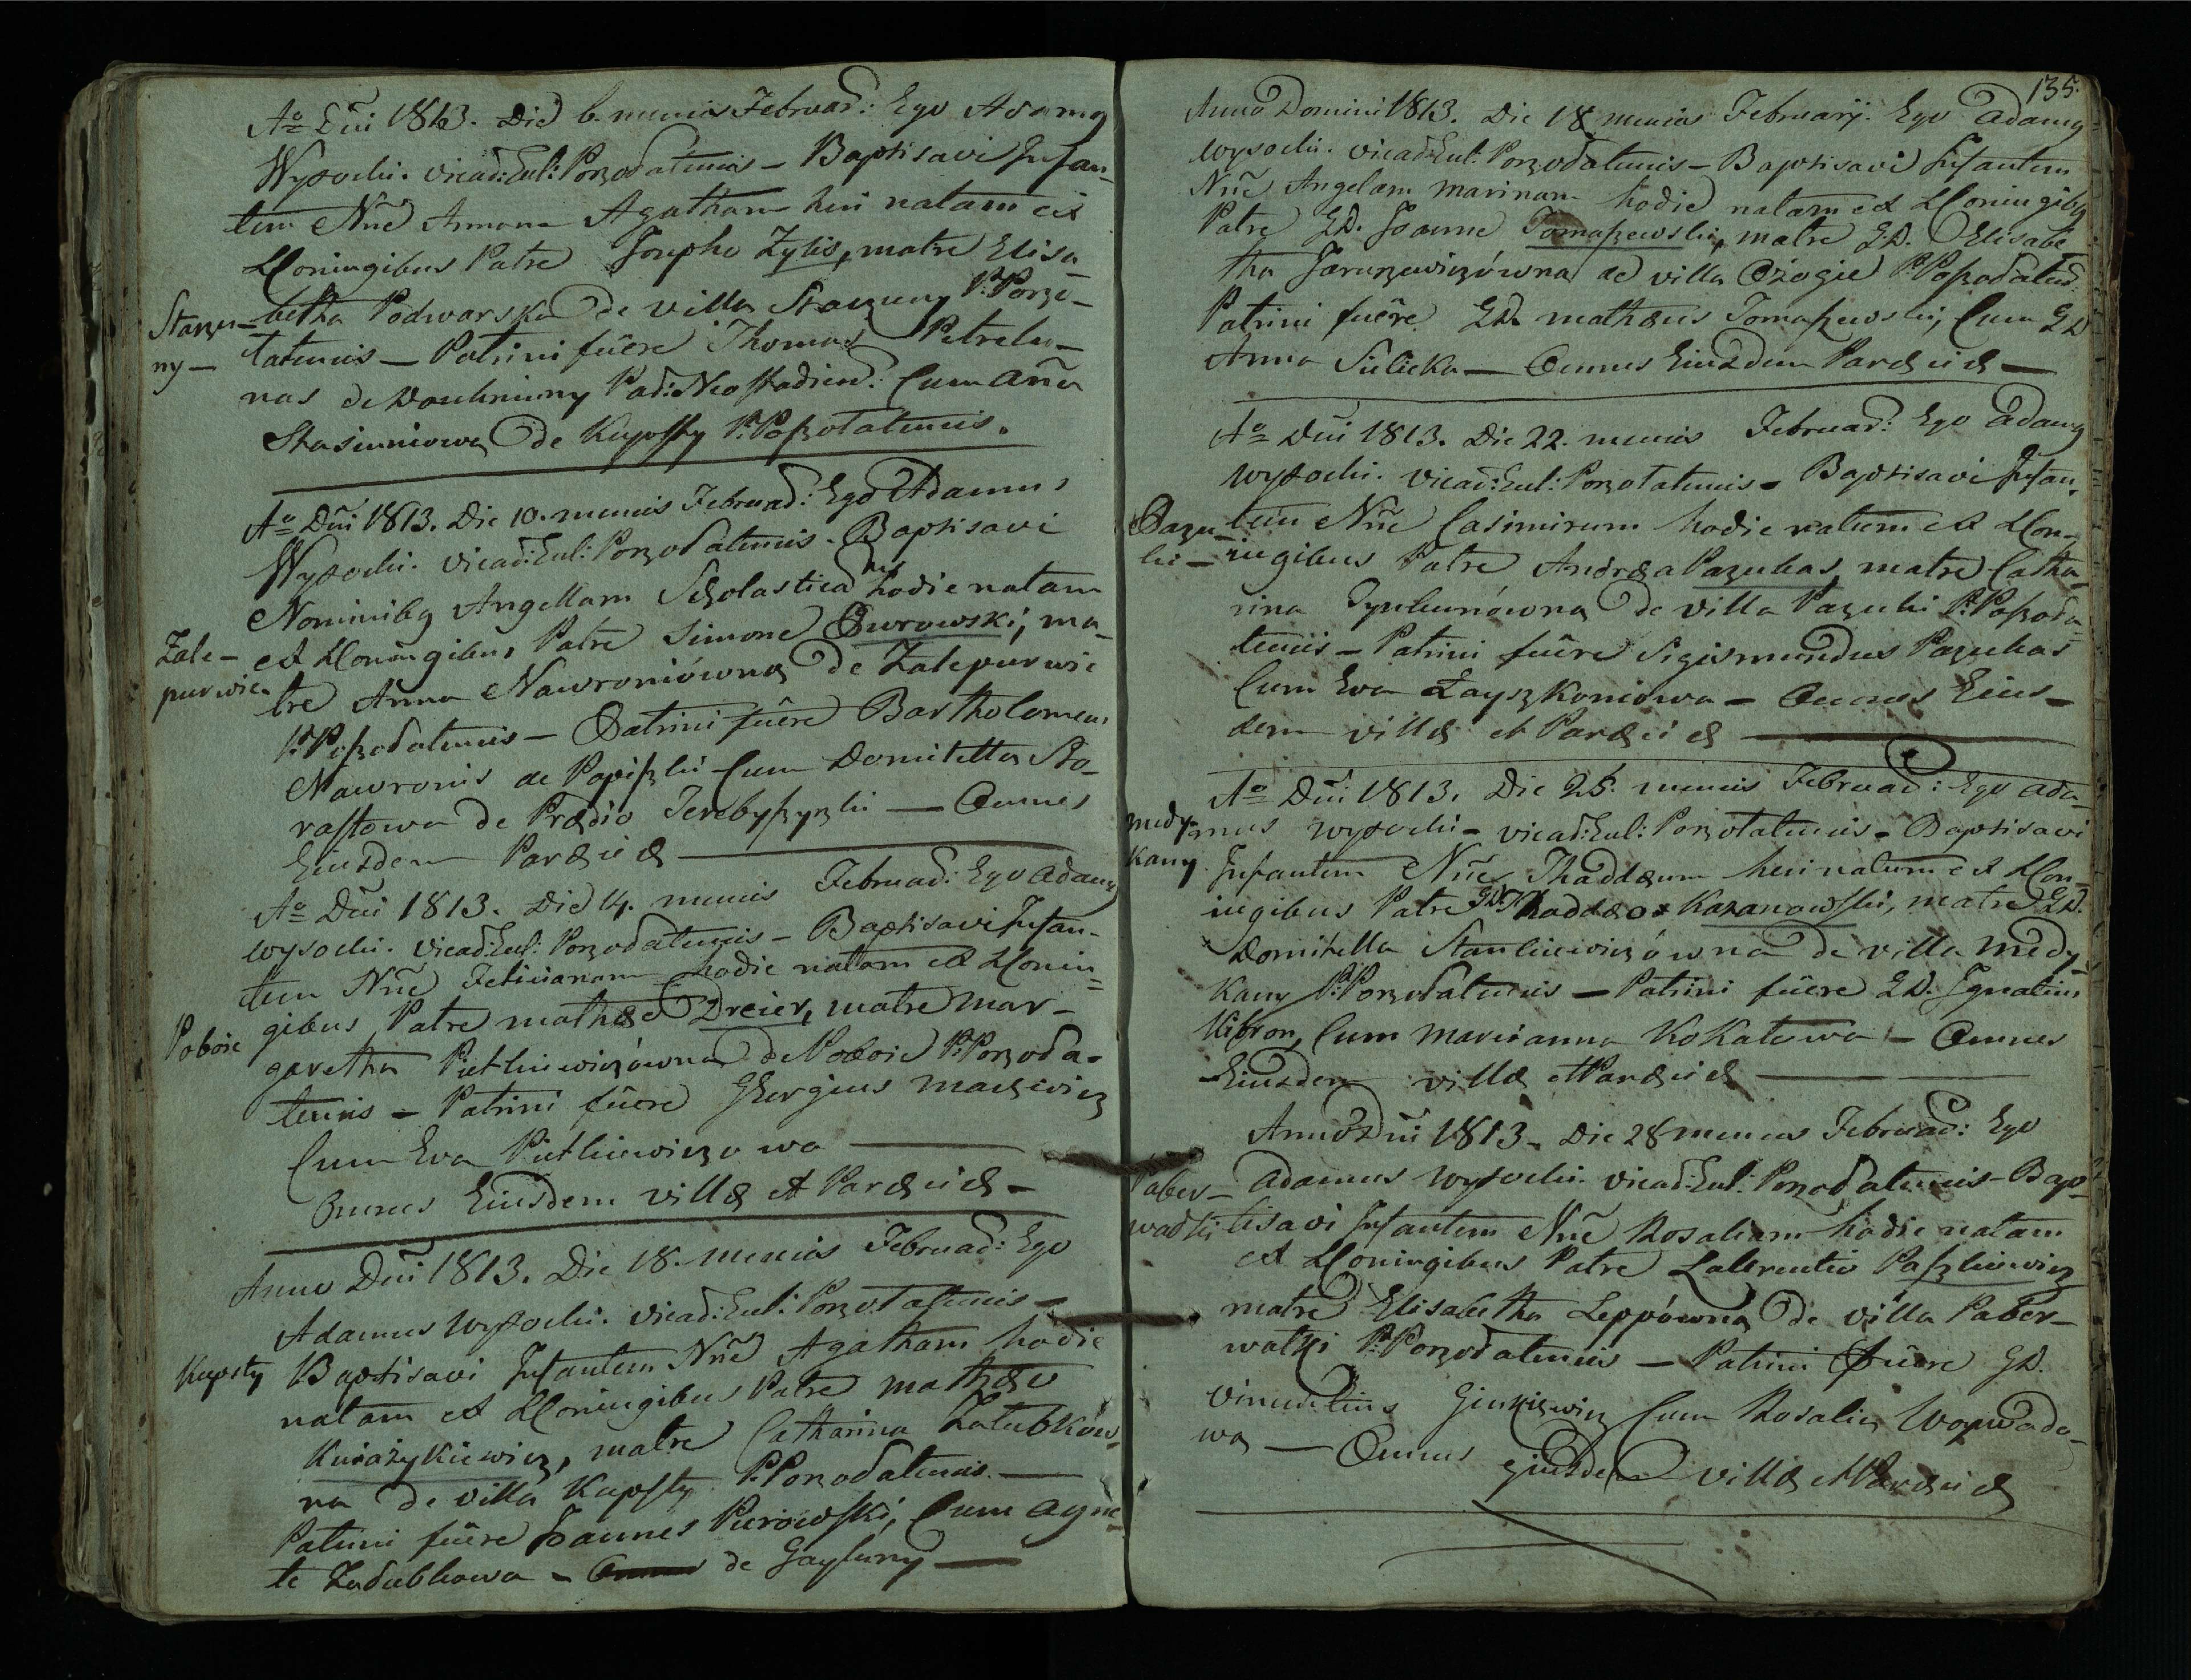 Aº Dñi 1813. Die 6. mensis Februar: Ego Adamq
Wysocki. vicar: Eccl: Porzodatensis – Baptisavi Infan-
tem Nñe Annam Agatham heri natam ex
LConiugibus Patre Josepho Zylis, matre Elisa-
Starzu-
ny –
betha Podwarska de villa Starzuny P: Porzo-
tatensis – Patrini fûere Thomas Petrelu-
nas de Pad: Neostadien: Cum Aña
Stasiuniowa de Kupsty P. Poszotatensis.
Aº Dñi 1813. Die 10. mensis Februar: Ego Adamus
Wysocki. vicar: Eccl: Porzodatensis – Baptisavi
Nominibq Angellam Scholasticam hodie natam
Zale-
purwie
ex LConiugibus Patre Simone Burowski, ma-
tre Anna Nawroniówna de Zalepurwie
P: Poszodatensis – Patrini fûere Bartholomeus
Nawronis de Popiszki Cum Domitella Sta-
rastowa de Prædio Terebyszyszki — Omnes
Eiusdem Paræciæ —
Aº Dñi 1813. Die 14. mensis Februar: Ego Adamq
Wysocki. vicar: Eccl: Porzodatensis – Baptisavi Infan-
tem Nñe Felicianam hodie natam ex LConiu=
Poboie
gibus Patre mathæo Dreier, matre Mar-
garetha Pietkiewiczówna de Poboie P: Porzoda-
tensis – Patrini fûere Georgius Mackiewicz
Cum Eva Pietkiewiczowa —
Omnes Eiusdem villæ et Paræciæ –
Anno Dñi 1813. Die 18. mensis Februar: Ego
Adamus Wysocki. vicar: Eccl: Porzotatensis –
Kupsty
Baptisavi Infantem Nñe Agatham hodie
natam ex LConiugibus Patre mathæo
Kniażykiewicz, matre Catharina Zatubków-
na de villa Kupsty P. Porzodatensis —
Patrini fûere Joannes Pierowski, Cum Agne-
te Zadubkowa – de Gayluny —
135.
Anno Domini 1813. Die 18 mensis Februarij. Ego Adamq
Wysocki. vicar: Eccl: Porzodatensis – Baptisavi Infantem
Nñe Angelam Marinam hodie natam ex LConiugibq
Patre GD. Joanne Tomaszewski, matre GD. Elisabe
tha Jaruszewiczówna de villa Ożogie P: Poszodatens:
Patrini fuêre GD. mathæus Tomaszewski, Cum GD
Anna Silicka — Omnes Eiusdem Paræciæ —
Aº Dñi 1813. Die 22. mensis Februar: Ego Adamq
Wysocki. vicar: Eccl: Porzotatensis – Baptisavi Infan-
Pazu-
ki –
tem Nñe Casimirum hodie natum ex LCon-
iugibus Patre Andræa Pazukas, matre Catha-
rina de villa Pazuki P: Poszoda-
tensis – Patrini fuêre Sigismundus Pazukas
Cum Eva Łayszkoniowa – Omnes Eius-
dem villæ et Paræciæ —
Aº Dñi 1813. Die 25. mensis Februar: Ego Ada-
Medy-
kany
mus Wysocki – vicar: Eccl: Porzotatensis – Baptisavi
Infantem Nñe Thaddæum heri natum ex LCon-
iugibus Patre GD. Thaddæo Kazanowski, matre GD.
Domitella Stankiewiczówna de villa Medy-
kany P: Porzodatensis – Patrini fûere GD. Ignatius
Kibron, Cum Marianna Kokatowa – Omnes
Eiusdem villæ et Paræciæ —
Anno Dñi 1813 – Die 28 mensis Februar: Ego
Paber-
watki
Adamus Wysocki. vicar: Eccl: Porzodatensis – Bap-
tisavi Infantem Nñe Rosaliam hodie natam
ex LConiugibus Patre Laurentio Paszkiewicz
matre Elisabetha Leppówna de villa Paber-
watki P: Porzodatensis – Patrini fûere GD.
Vincentius Ginkiewicz Cum Rosalia
wa — Omnes ejusdem villæ et Paræciæ